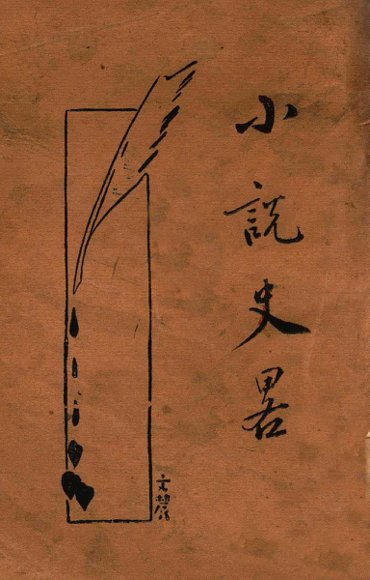 小說史畧
文